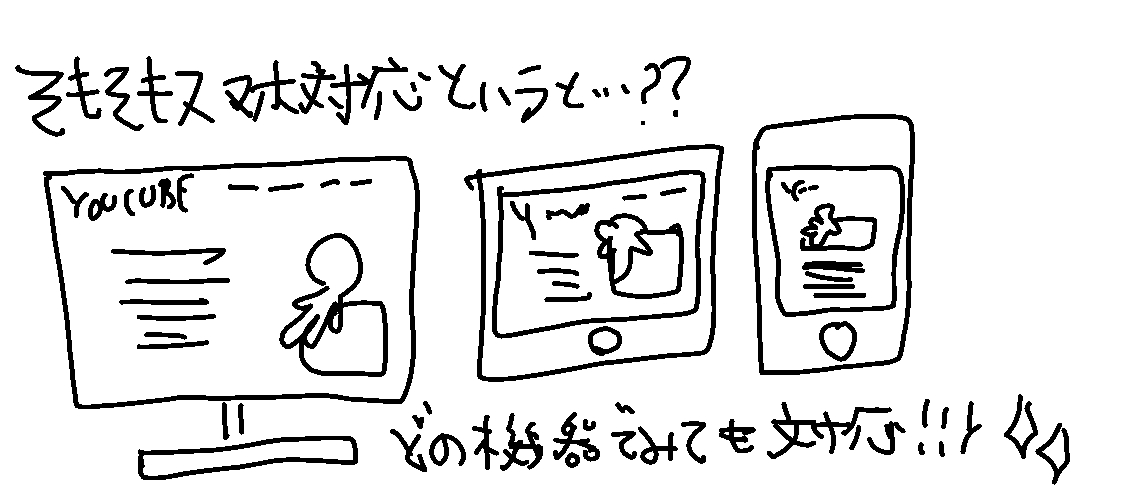 そもそもスマホ対応というと…??
YOUCUBE
Y
Y
どの機器でみても対応!!